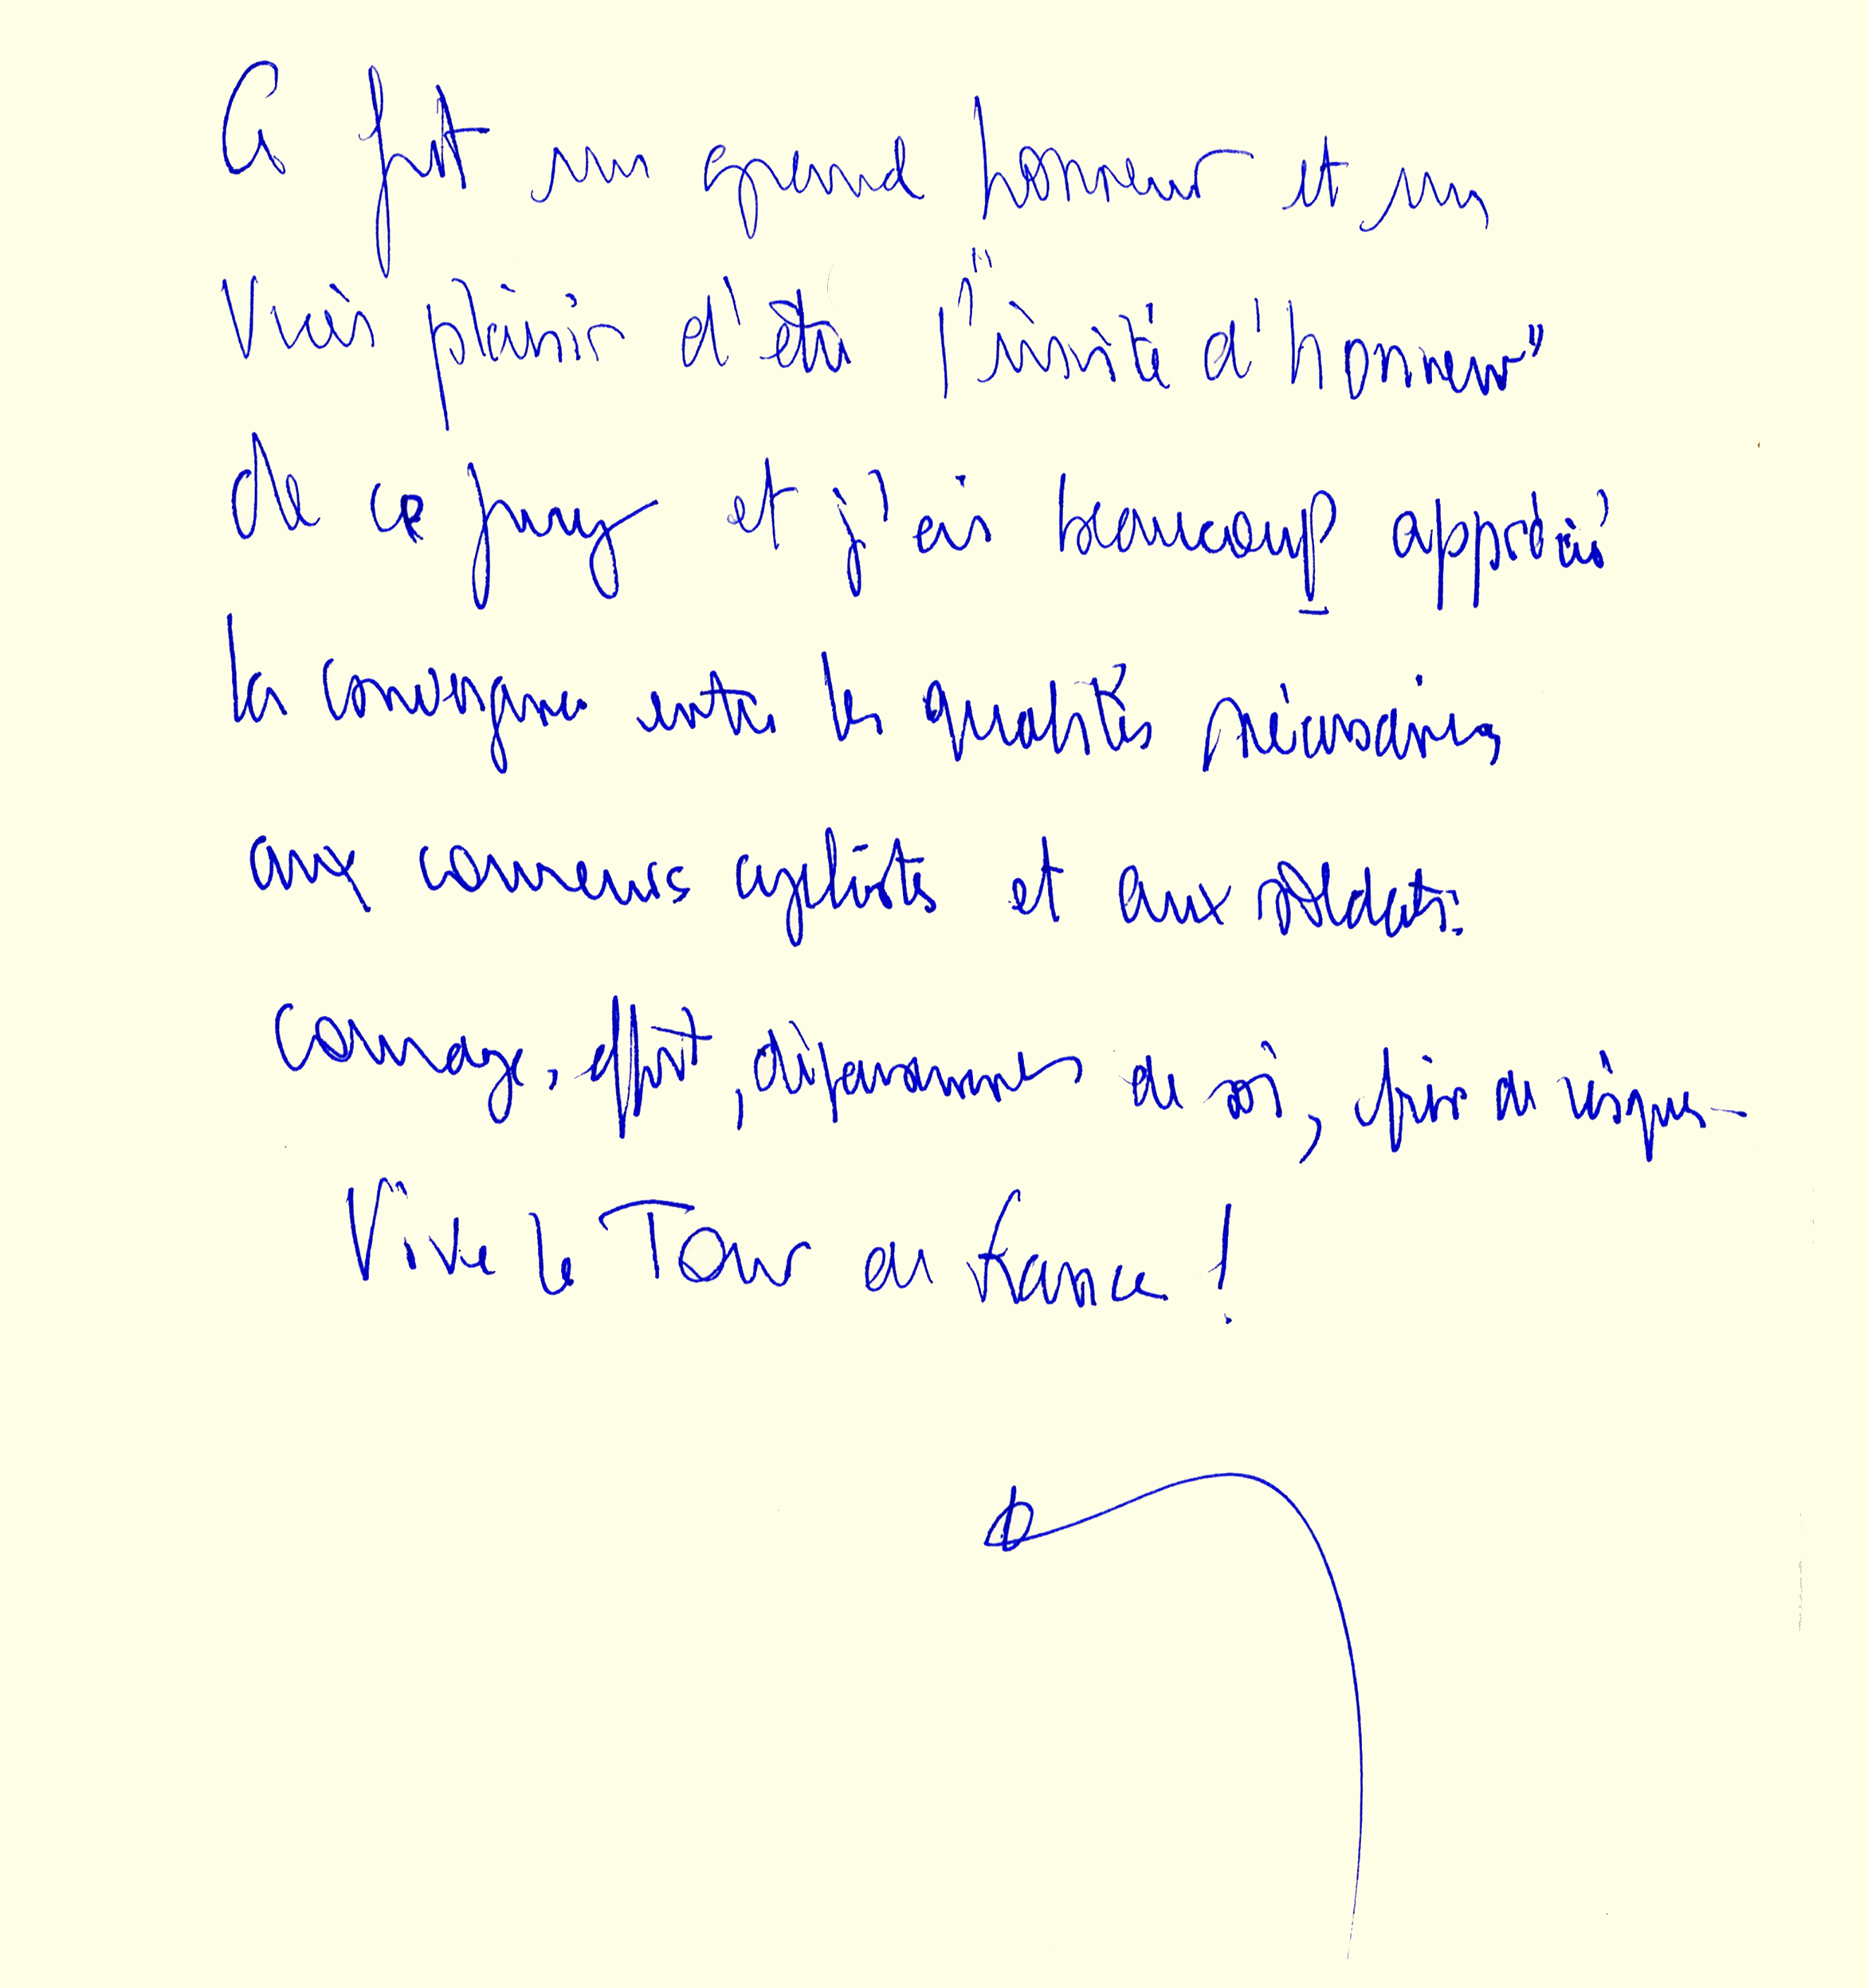 Ce fut un grand honneur et un
vrai plaisir d'être l'"invité d'honneur"
de ce jury et j'ai beaucoup apprécié
la convergence entre les qualités nécessaires
aux coureurs cyclistes et aux soldats :
Courage, effort, dépassement de soi, prise de risques
Vive le Tour de France !